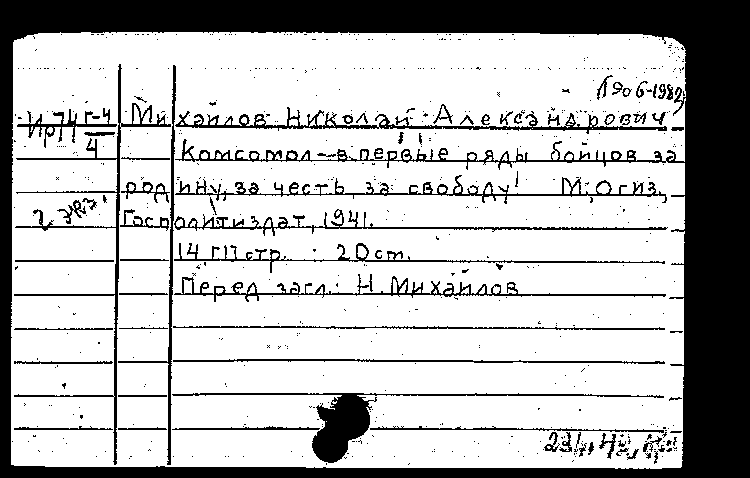 (1906-1982)
Михайлов Николай Александрович
Ир74 г-4
4
Комсомол - в первые ряды бойцов за
родину, за честь, за свободу! М., Огиз,
2 экз.
Госполитиздат, 1941.
14 [1] стр. 20 ст.
Перед загл.: Н. Михайлов